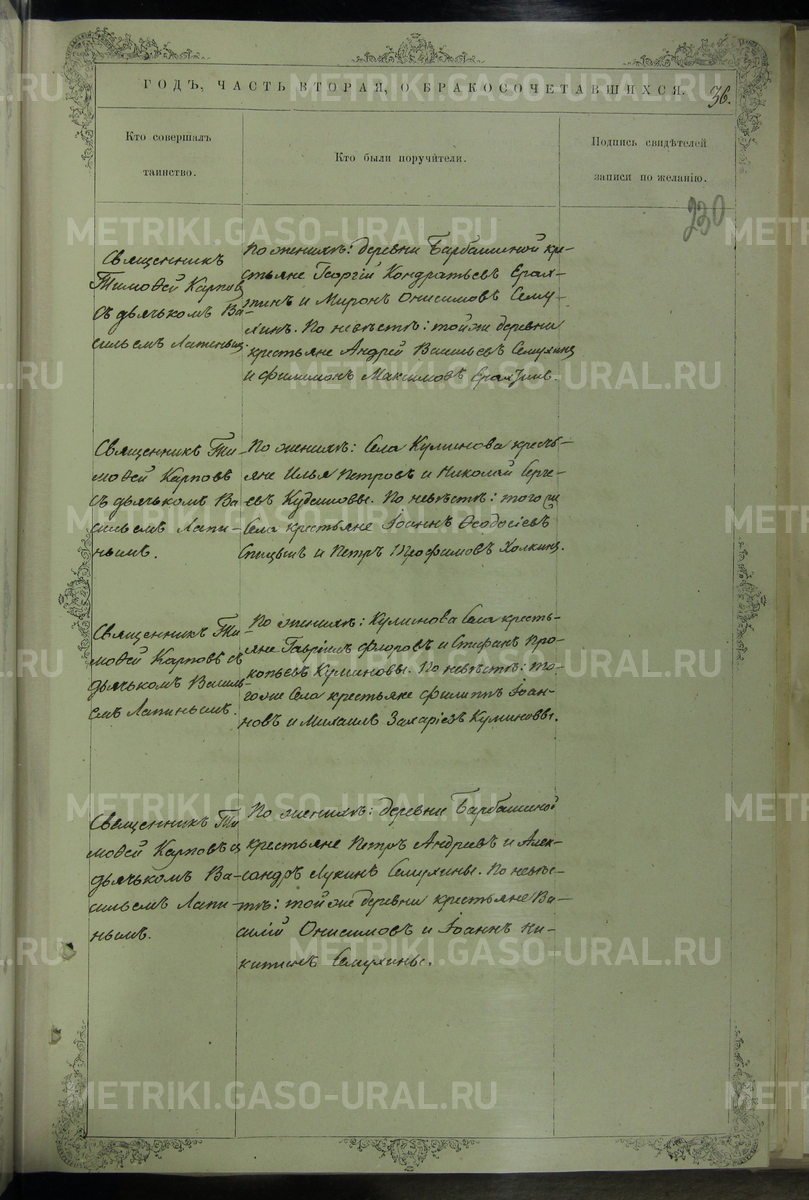 ГОДЪ, ЧАСТЬ ВТОРАЯ, О БРАКОСОЧЕТАВШИХСЯ.
36.
Кто совершалъ
таинство.
Кто были поручители.
Подпись свидѣтелей
записи по желанію.
230
Священникъ
Тимофей Карповъ
съ дьячкомъ Ва-
сильемъ Лапинымъ.
По женихѣ: деревни Барбашиной кре-
стьяне Георгій Кондратьевъ
и Миронъ Онисимовъ Сему-
хинъ. По невѣстѣ: тойже деревни
крестьяне Андрей Васильевъ Семухинъ
и Филимонъ Максимовъ
Священникъ Ти-
мофей Карповъ
съ дьячкомъ Ва-
сильемъ Лапи-
нымъ.
По женихѣ: села Кулинова кресть-
яне Илья Петровъ и Николай Серге-
евъ По невѣстѣ: того же
села крестьяне Іоаннъ Ѳеодосіевъ
Спицынъ и Петръ Трофимовъ Холкинъ.
Священникъ Ти-
мофей Карповъ съ
дьячкомъ Василь-
емъ Лапинымъ.
По женихѣ: Кулинова села кресть-
яне Гавріилъ Флоровъ и Стефанъ Про-
копьевъ Кулиновы. По невѣстѣ: то-
гоже села крестьяне Филиппъ Іоан-
новъ и Михаилъ Захаріевъ Кулиновы.
Священникъ Ти
мофей Карповъ съ
дьячкомъ Ва-
сильемъ Лапи-
нымъ.
По женихѣ: деревни Барбашиной
крестьяне Петръ Андреевъ и Алек-
сандръ Лукинъ Семухины. По невѣс-
тѣ: той же деревни крестьяне Ва-
силій Онисимовъ и Іоаннъ Ни-
китинъ Семухины.
METRIKI.GASO-URAL.RU